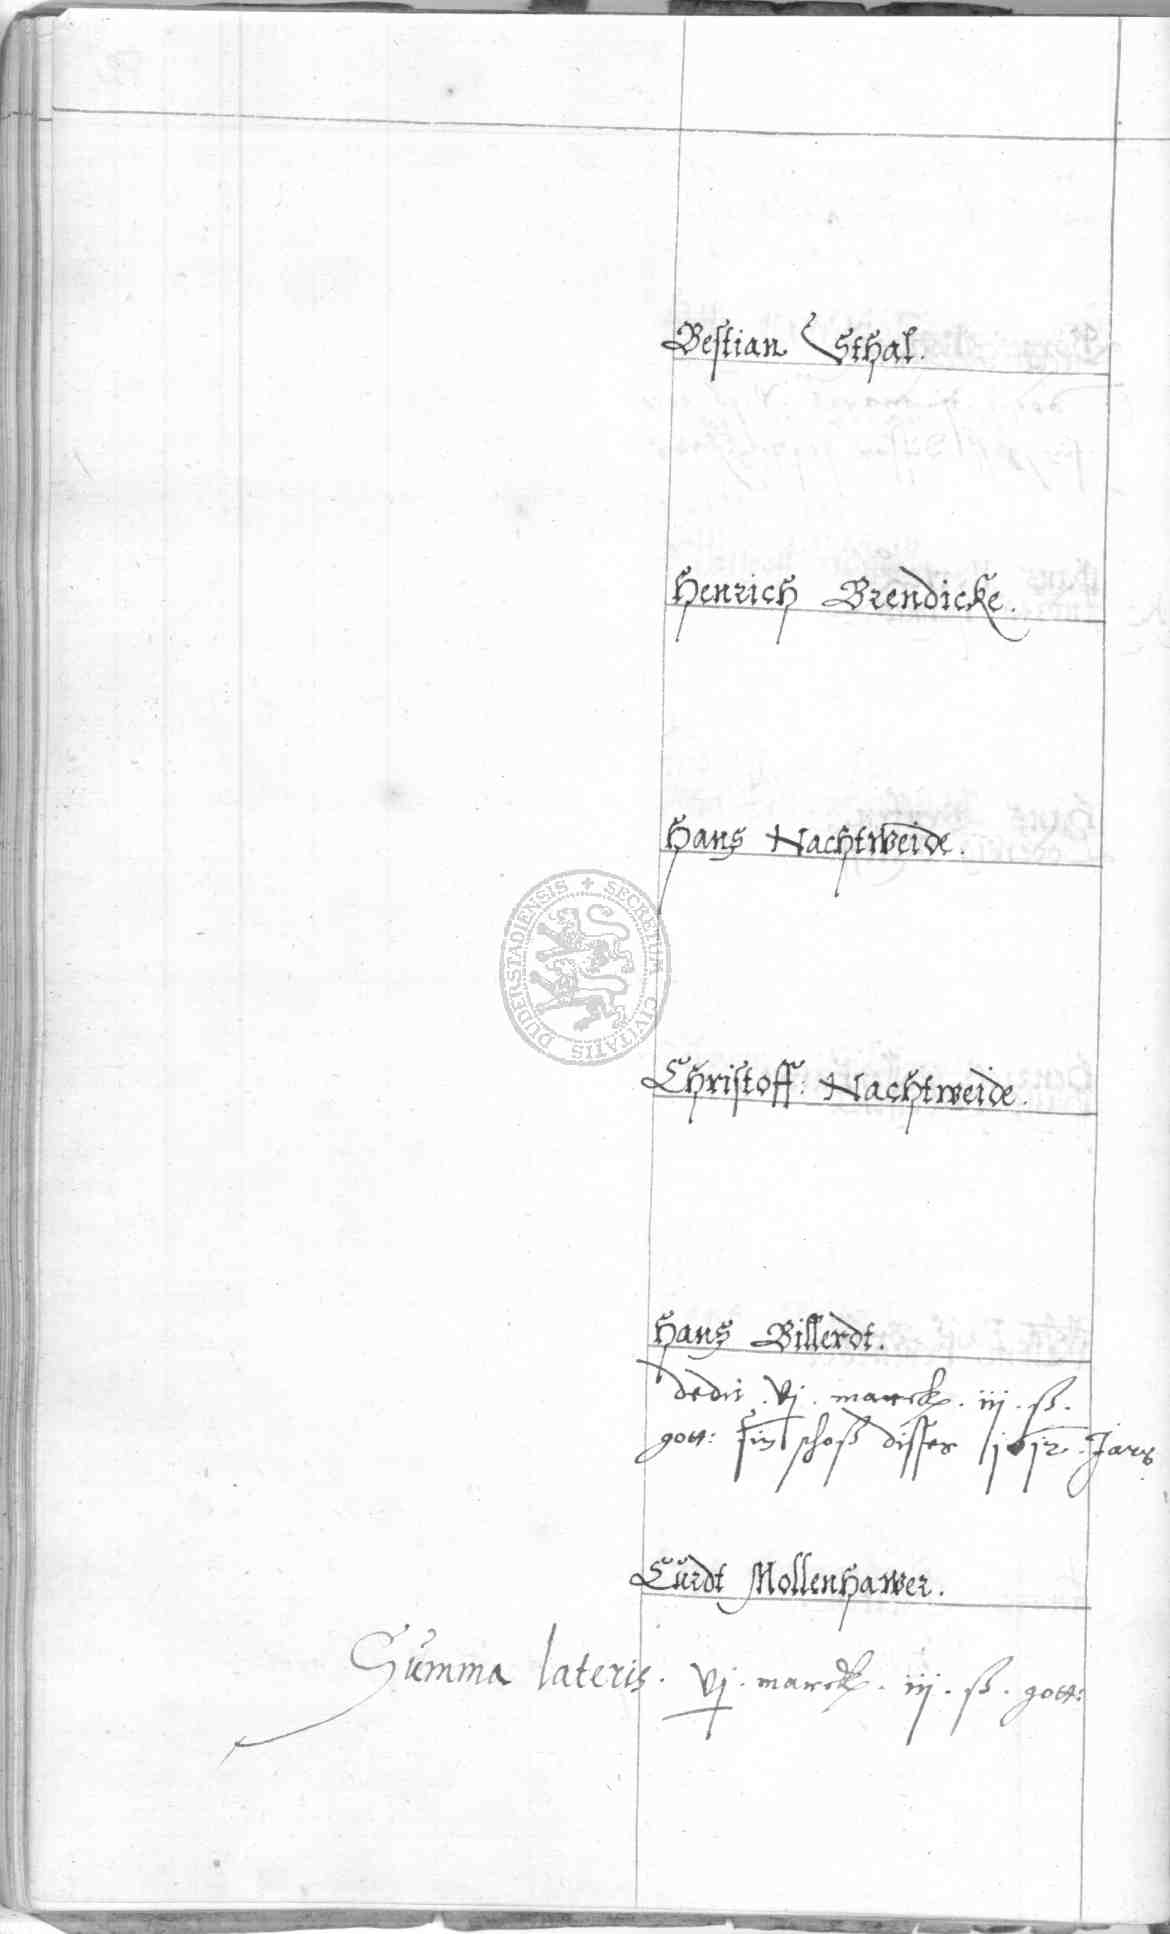 Bestian Sthal.
Henrich Brendicke.
Hans Nachtweide.
SECRETUM CIVITATIS DUDERSTADIENSIS
Christoff: Nachtweide.
Hans Billerdt.
dedit . vj . marck . iij . ß .
gott: sin schoß disses 1612 . Jars
Curdt Mollenhawer.
Summa lateris . vj . marck . iij . ß . gott: